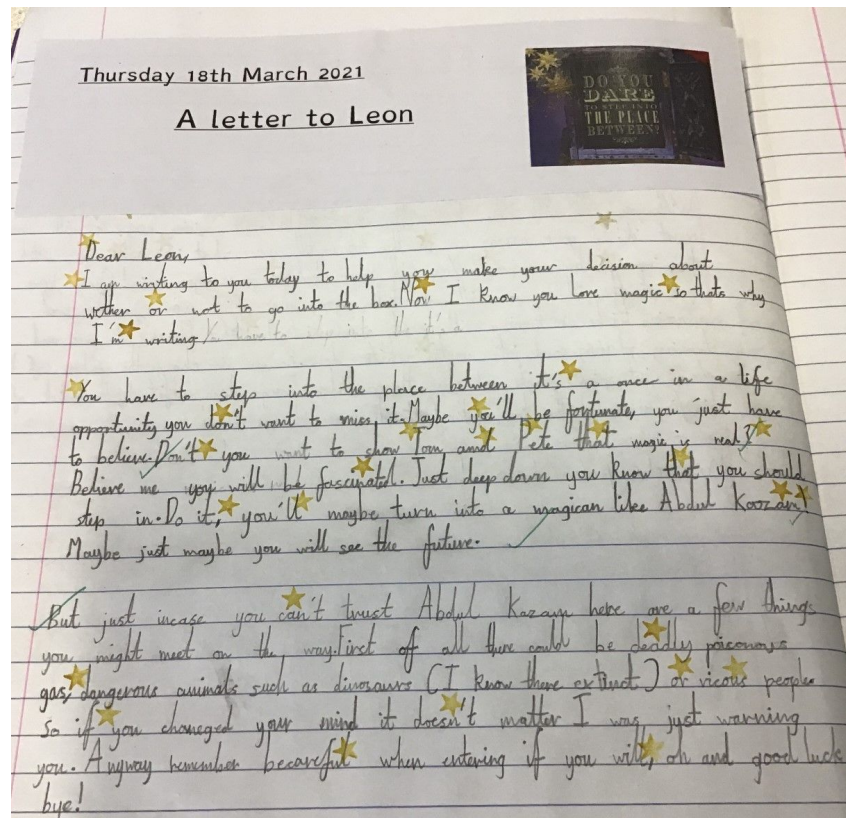 Thursday 18th March 2021
A letter to Leon
DO YOU
DARE
TO STEP INTO
THE PLACE
BETWEEN?
Dear Leon,
I am writing to you today to help you make your decision about
wether or not to go into the box. Now I know you love magic so thats why
I'm writing
You have to step into the place between it's a once in a life
opportunity you don't want to miss it. Maybe you'll be fortunate, you just have
to believe. Don't you want to show Tom and Pete that magic is real?
Believe me you will be fascinated. Just deep down you know that you should
step in. Do it, you'll maybe turn into a magican like Abdul Kazam!
Maybe just maybe you will see the future.
But just incase you can't trust Abdul Kazam here are a few things
you might meet on the way. First of all there could be deadly poiconous
gas, dangerous animals such as dinosaurs (I know there extinct) or vicous people
So if you chaneged your mind it doesn't matter I was just warning
you. Anyway remember becareful when entering if you will, oh and good luck
bye!